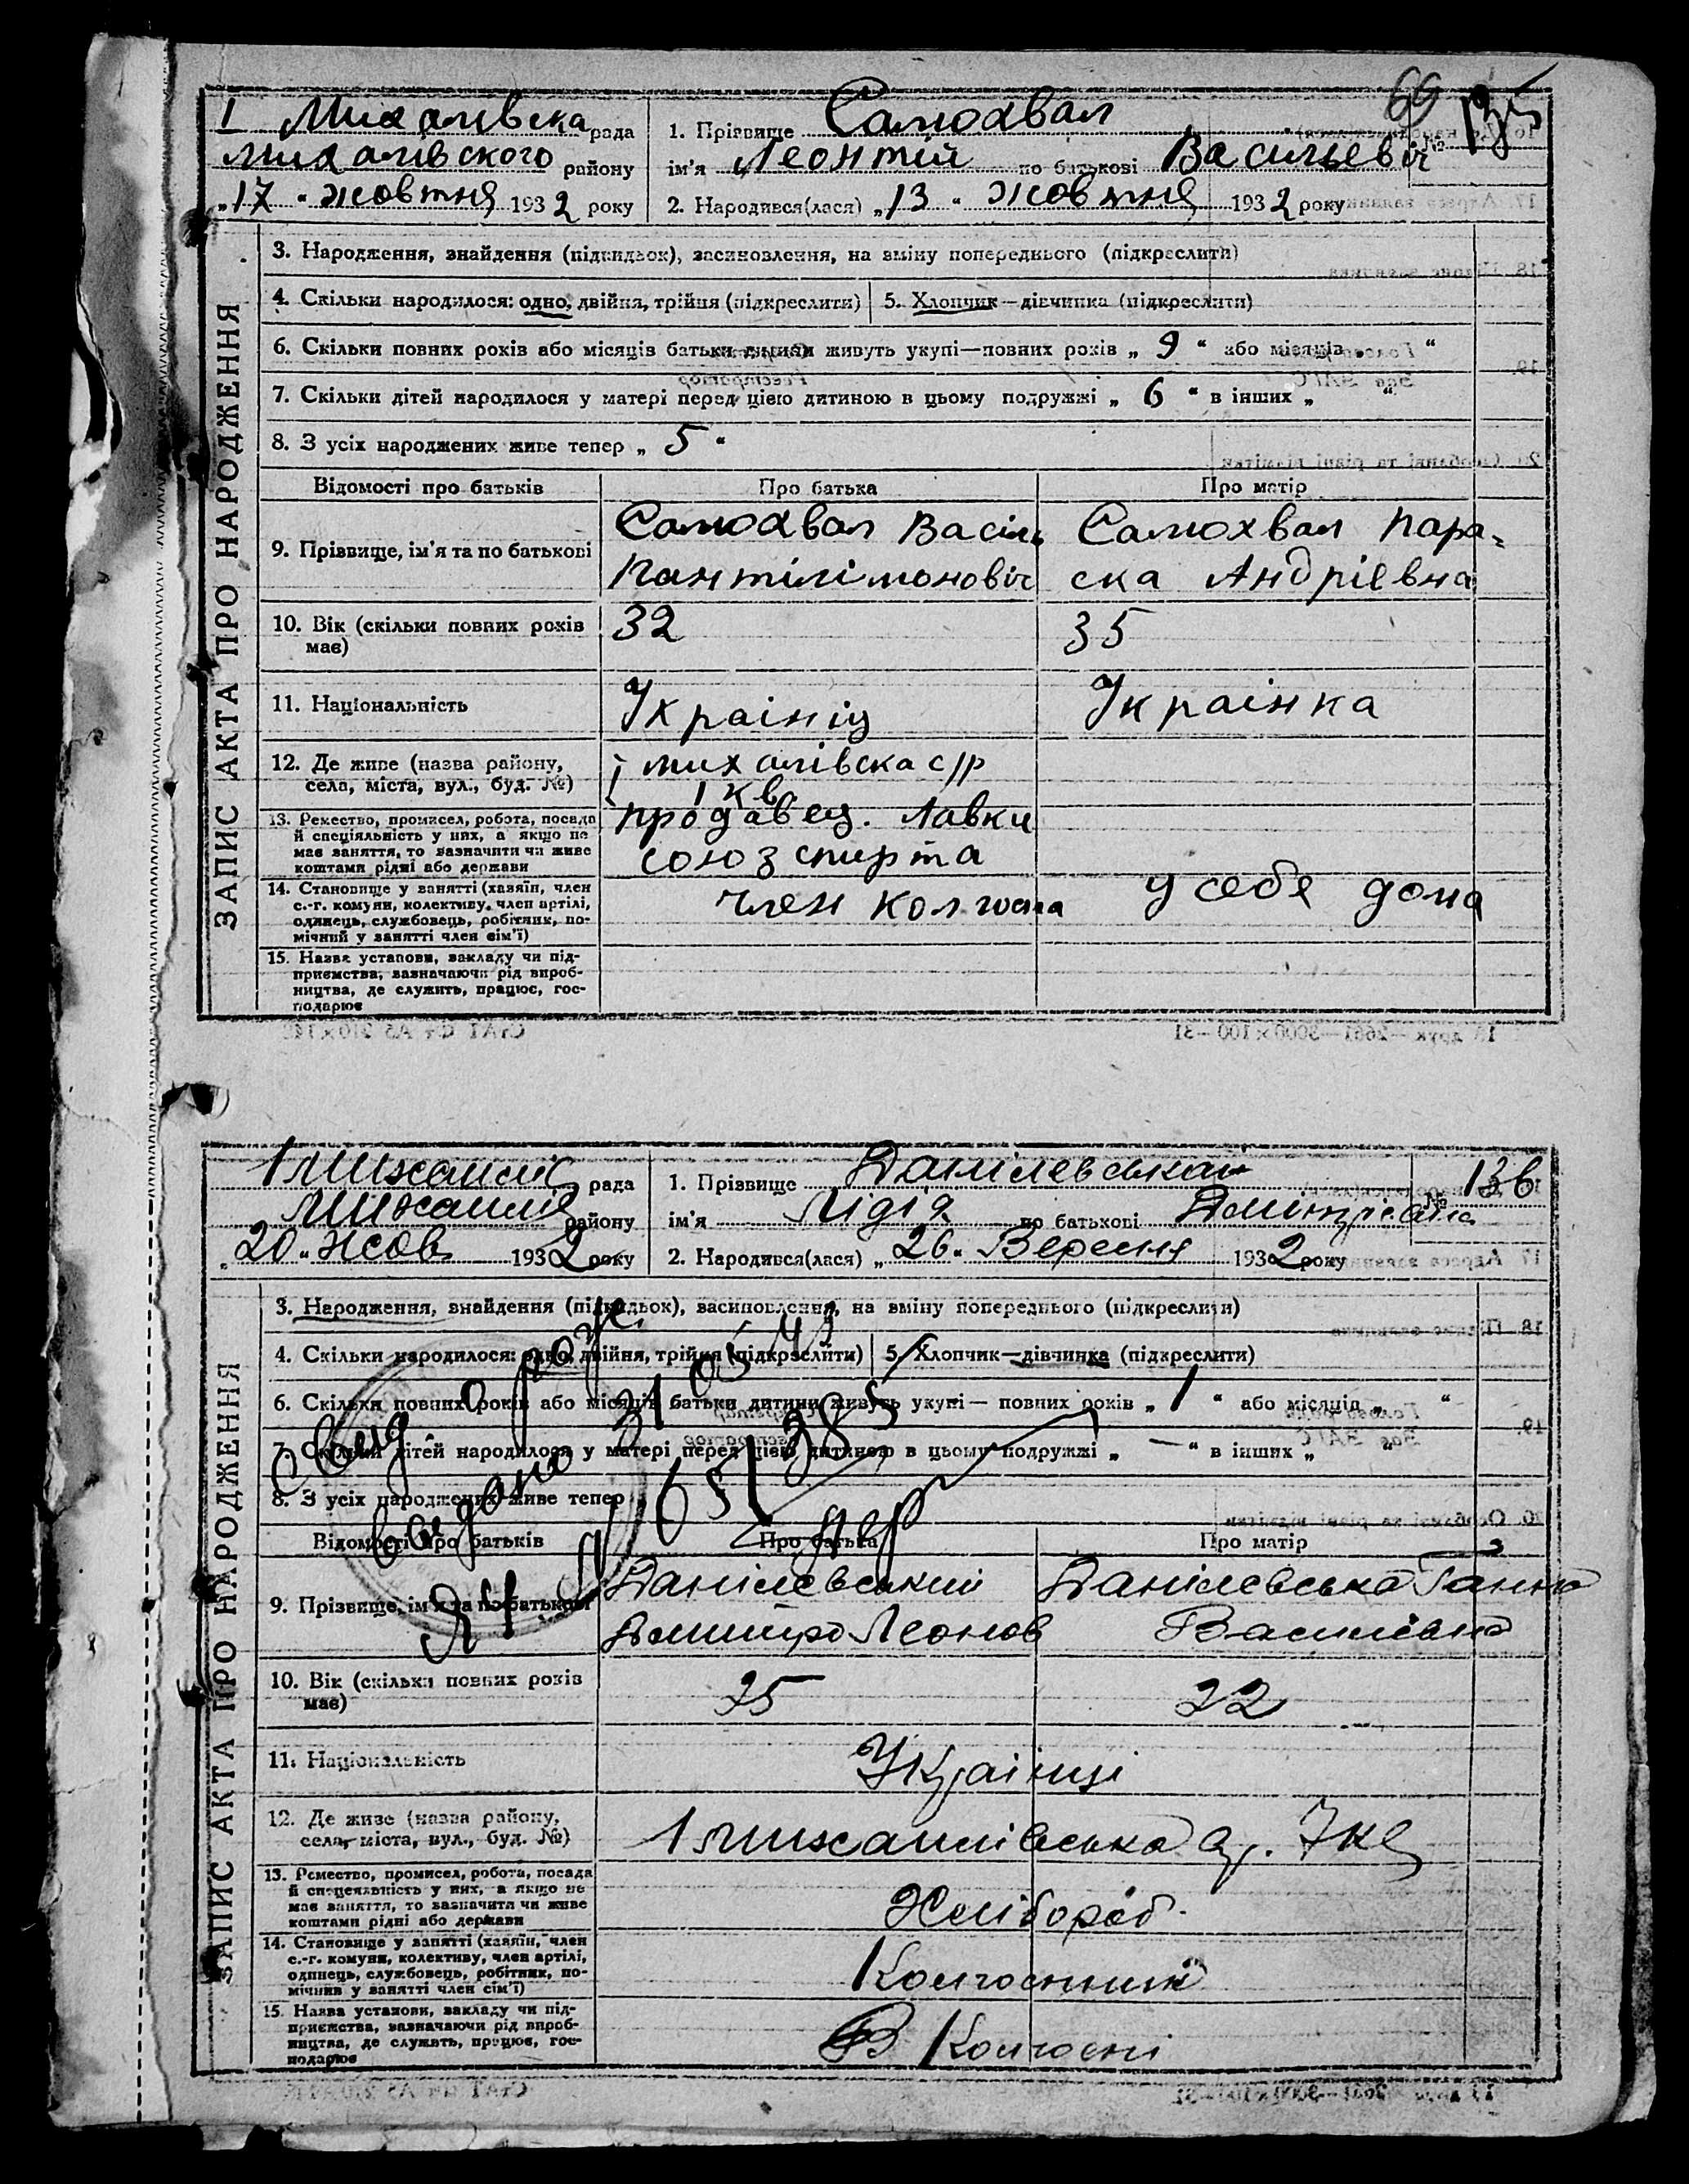 69
І Михалівска рада
Михалівского району
„17“ жовтня 1932 року
1. Прізвище Самохвал
№ 135
ім'я Леонтій по батькові Васильевіч
2. Народився(лася) „13“ жовтня 1932 року
ЗАПИС АКТА ПРО НАРОДЖЕННЯ
3. Народження, знайдення (підкидьок), засиновлення, на зміну попереднього (підкреслити)
4. Скільки народилося: одно, двійня, трійня (підкреслити)
5. Хлопчик—дівчинка (підкреслити)
6. Скільки повних років або місяців батьки дитини живуть укупі—повних років „ 9 “ або місяців „ “
7. Скільки дітей народилося у матері перед цією дитиною в цьому подружжі „ 6 “ в інших „ “
8. З усіх народжених живе тепер „ 5 “
Відомості про батьків Про батька Про матір
9. Прізвище, ім'я та по батькові
Самохвал Васіль
Пантілімоновіч
Самохвал Пара-
ска Андріевна
10. Вік (скільки повних років
має)
32
35
11. Національність
Украініц
Украінка
12. Де живе (назва району,
села, міста, вул., буд. №)
І михалівска с/р
1 кв
13. Ремество, промисел, робота, посада
й спеціяльність у них, а якщо не
має заняття, то зазначити чи живе
коштами рідні або держави
продавец. Лавки
союз спирта
14. Становище у занятті (хазяїн, член
с.-г. комуни, колективу, член артілі,
одинець, службовець, робітник, по-
мічний у занятті член сім'ї)
член колгоспа
у себе дома
15. Назва установи, закладу чи під-
приємства, зазначаючи рід вироб-
ництва, де служить, працює, гос-
подарює
1 Михайлів рада
Михайлів району
„20“ жов 1932 року
1. Прізвище Данілевськая
№ 136
ім'я Лідія по батькові
2. Народився(лася) „26“ Вересня 1932 року
ЗАПИС АКТА ПРО НАРОДЖЕННЯ
3. Народження, знайдення (підкидьок), засиновлення, на зміну попереднього (підкреслити)
4. Скільки народилося: одно, двійня, трійня (підкреслити)
5. Хлопчик—дівчинка (підкреслити)
6. Скільки повних років або місяців батьки дитини живуть укупі— повних років „ 1 “ або місяців „ “
7. Скільки дітей народилося у матері перед цією дитиною в цьому подружжі „ — “ в інших „ “
8. З усіх народжених живе тепер
Відомості про батьків Про батька Про матір
9. Прізвище, ім'я та по батькові
Данілевський
Дмитро Леонов
Данілевська Ганна
Василівна
10. Вік (скільки повних років
має)
25
22
11. Національність
Українці
12. Де живе (назва району,
села, міста, вул., буд. №)
1 михайлівська 7 кв
13. Ремество, промисел, робота, посада
й спецеяльність у них, а якщо не
має заняття, то зазначити чи живе
коштами рідні або держави
Хлібороб
14. Становище у занятті (хазяїн, член
с.-г. комуни, колективу, член артілі,
одинець, службовець, робітник, по-
мічник у занятті член сім'ї)
Колгоспник
15. Назва установи, закладу чи під-
приємства, зазначаючи рід вироб-
ництва, де служить, працює, гос-
подарює
В Колгоспі